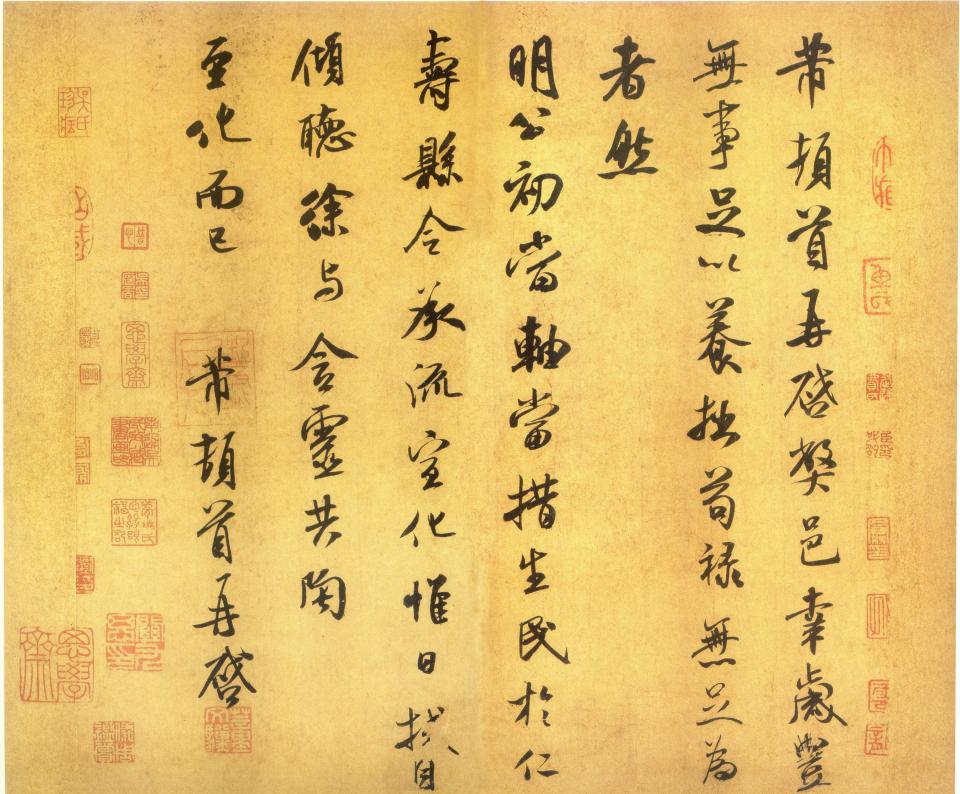 芾頓首再啓弊邑幸歲豐
無事足以養拙苟祿無足為
者然
明公初當軸當措生民於仁
壽縣令承流宣化惟日拭目
傾聽徐与含靈共陶
至化而已 芾頓首再啓
思學齋
思學齋